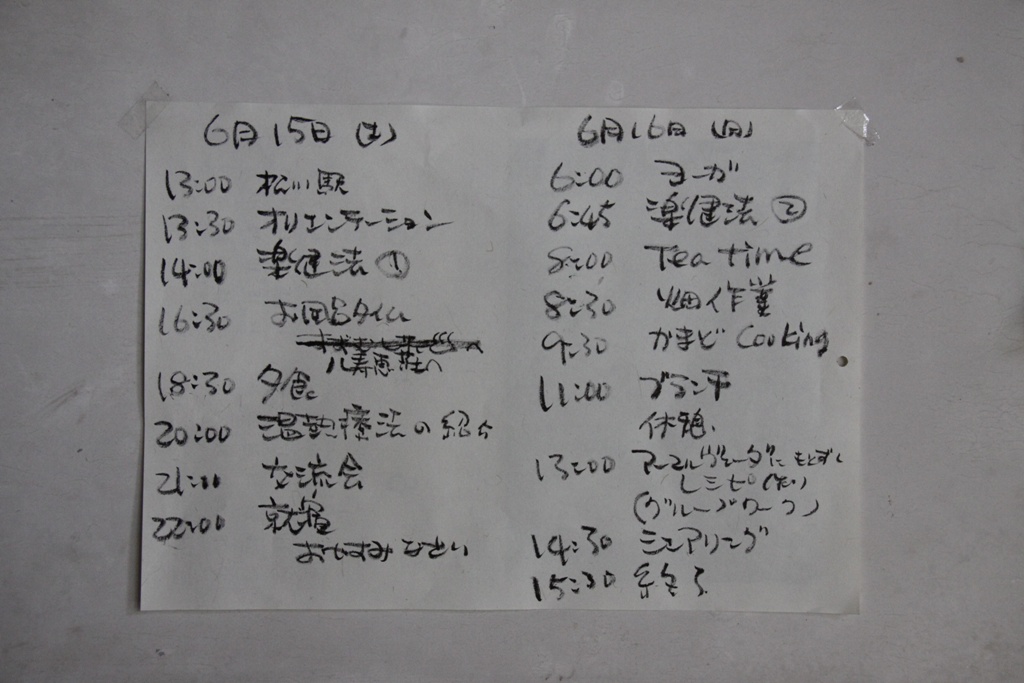 6月15日(土)
13:00 松川駅
13:30 オリエンテーション
14:00 楽健法①
16:30 お風呂タイム
八寿恵荘へ
18:30 夕食
20:00 温熱療法の紹介
21:00 交流会
22:00 就寝
おやすみなさい
6月16日(月)
6:00 ヨーガ
6:45 楽健法②
8:00 Tea time
8:30 畑作業
9:30 かまどCooking
11:00 ブランチ
休憩
13:00 アーユルヴェーダにもとずく
レシピ作り
(グループワーク)
14:30 シェアリング
15:30 終了